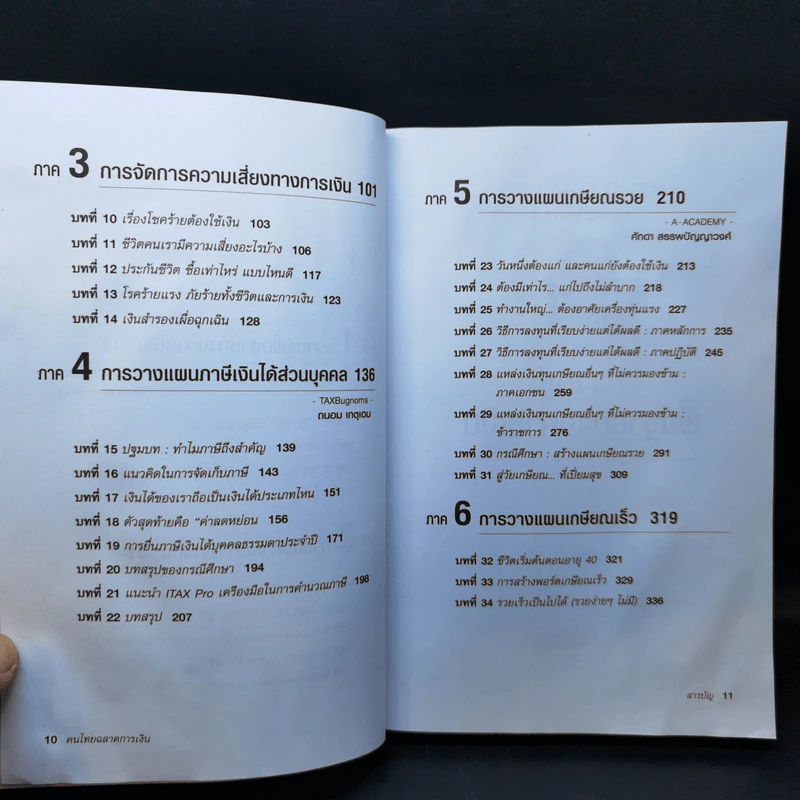 ภาค 3 การจัดการความเสี่ยงทางการเงิน 101
บทที่ 10 เรื่องโชคร้ายต้องใช้เงิน 103
บทที่ 11 ชีวิตคนเรามีความเสี่ยงอะไรบ้าง 106
บทที่ 12 ประกันชีวิต ซื้อเท่าไหร่ แบบไหนดี 117
บทที่ 13 โรคร้ายแรง ภัยร้ายทั้งชีวิตและการเงิน 123
บทที่ 14 เงินสำรองเผื่อฉุกเฉิน 128
ภาค 4 การวางแผนภาษีเงินได้ส่วนบุคคล 136
- TAXBugnoms -
ถนอม เกตุเอม
บทที่ 15 ปฐมบท : ทำไมภาษีถึงสำคัญ 139
บทที่ 16 แนวคิดในการจัดเก็บภาษี 143
บทที่ 17 เงินได้ของเราถือเป็นเงินได้ประเภทไหน 151
บทที่ 18 ตัวสุดท้ายคือ “ค่าลดหย่อน 156
บทที่ 19 การยื่นภาษีเงินได้บุคคลธรรมดาประจำปี 171
บทที่ 20 บทสรุปของกรณีศึกษา 194
บทที่ 21 แนะนำ ITAX Pro เครื่องมือในการคำนวณภาษี 198
บทที่ 22 บทสรุป 207
10 คนไทยฉลาดการเงิน
ภาค 5 การวางแผนเกษียณรวย 210
- A-ACADEMY -
ศักดา สรรพปัญญาวงศ์
บทที่ 23 วันหนึ่งต้องแก่ และคนแก่ยังต้องใช้เงิน 213
บทที่ 24 ต้องมีเท่าไร... แก่ไปถึงไม่ลำบาก 218
บทที่ 25 ทำงานใหญ่... ต้องอาศัยเครื่องทุ่นแรง 227
บทที่ 26 วิธีการลงทุนที่เรียบง่ายแต่ได้ผลดี : ภาคหลักการ 235
บทที่ 27 วิธีการลงทุนที่เรียบง่ายแต่ได้ผลดี : ภาคปฏิบัติ 245
บทที่ 28 แหล่งเงินทุนเกษียณอื่นๆ ที่ไม่ควรมองข้าม :
ภาคเอกชน 259
บทที่ 29 แหล่งเงินทุนเกษียณอื่นๆ ที่ไม่ควรมองข้าม :
ข้าราชการ 276
บทที่ 30 กรณีศึกษา : สร้างแผนเกษียณรวย 291
บทที่ 31 สู่วัยเกษียณ... ที่เปี่ยมสุข 309
ภาค 6 การวางแผนเกษียณเร็ว 319
บทที่ 32 ชีวิตเริ่มต้นตอนอายุ 40 321
บทที่ 33 การสร้างพอร์ตเกษียณเร็ว 329
บทที่ 34 รวยเร็วเป็นไปได้ (รวยง่ายๆ ไม่มี) 336
สารบัญ 11